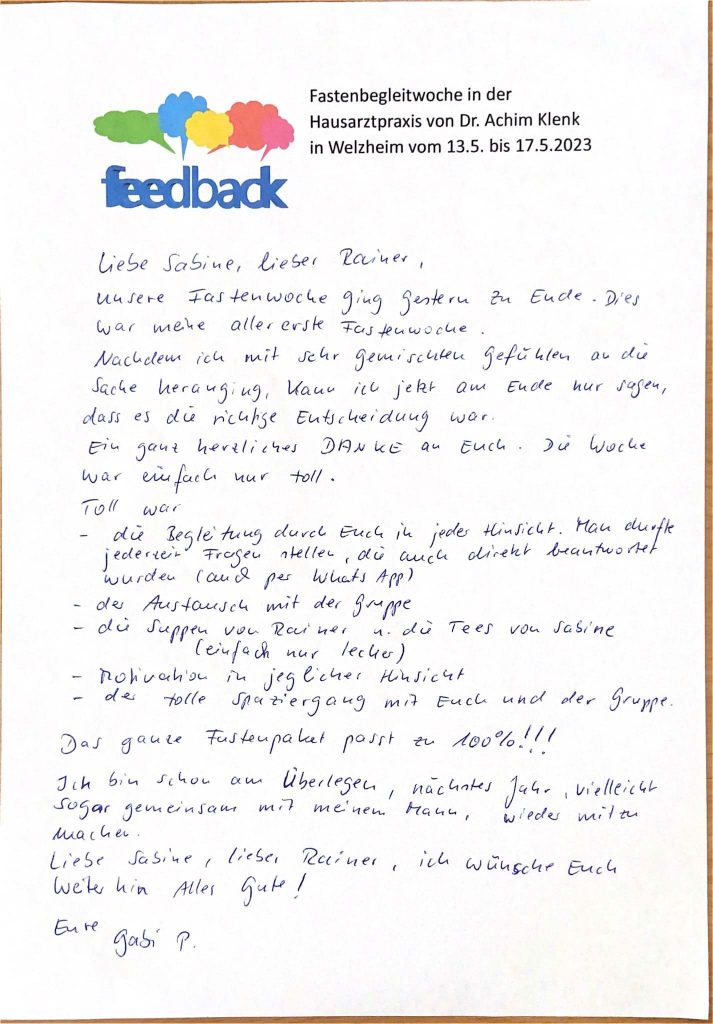 feedback
Fastenbegleitwoche in der
Hausarztpraxis von Dr. Achim Klenk
in Welzheim vom 13.5. bis 17.5.2023
Liebe Sabine, lieber Rainer,
unsere Fastenwoche ging gestern zu Ende. Dies
war meine allererste Fastenwoche.
Nachdem ich mit sehr gemischten Gefühlen an die
Sache heranging, kann ich jetzt am Ende nur sagen,
dass es die richtige Entscheidung war.
Ein ganz herzliches DANKE an Euch. Die Woche
war einfach nur toll.
Toll war
- die Begleitung durch Euch in jeder Hinsicht. Man durfte
jederzeit Fragen stellen, die auch direkt beantwortet
wurden (auch per Whats App)
- der Austausch mit der Gruppe
- die Suppen von Rainer u. die Tees von Sabine
(einfach nur lecker)
- Motivation in jeglicher Hinsicht
- der tolle Spaziergang mit Euch und der Gruppe.
Das ganze Fastenpaket passt zu 100%!!!
Ich bin schon am Überlegen, nächstes Jahr, vielleicht
sogar gemeinsam mit meinem Mann, wieder mitzu
machen.
Liebe Sabine, lieber Rainer, ich wünsche Euch
weiterhin Alles Gute!
Eure
Gabi P.